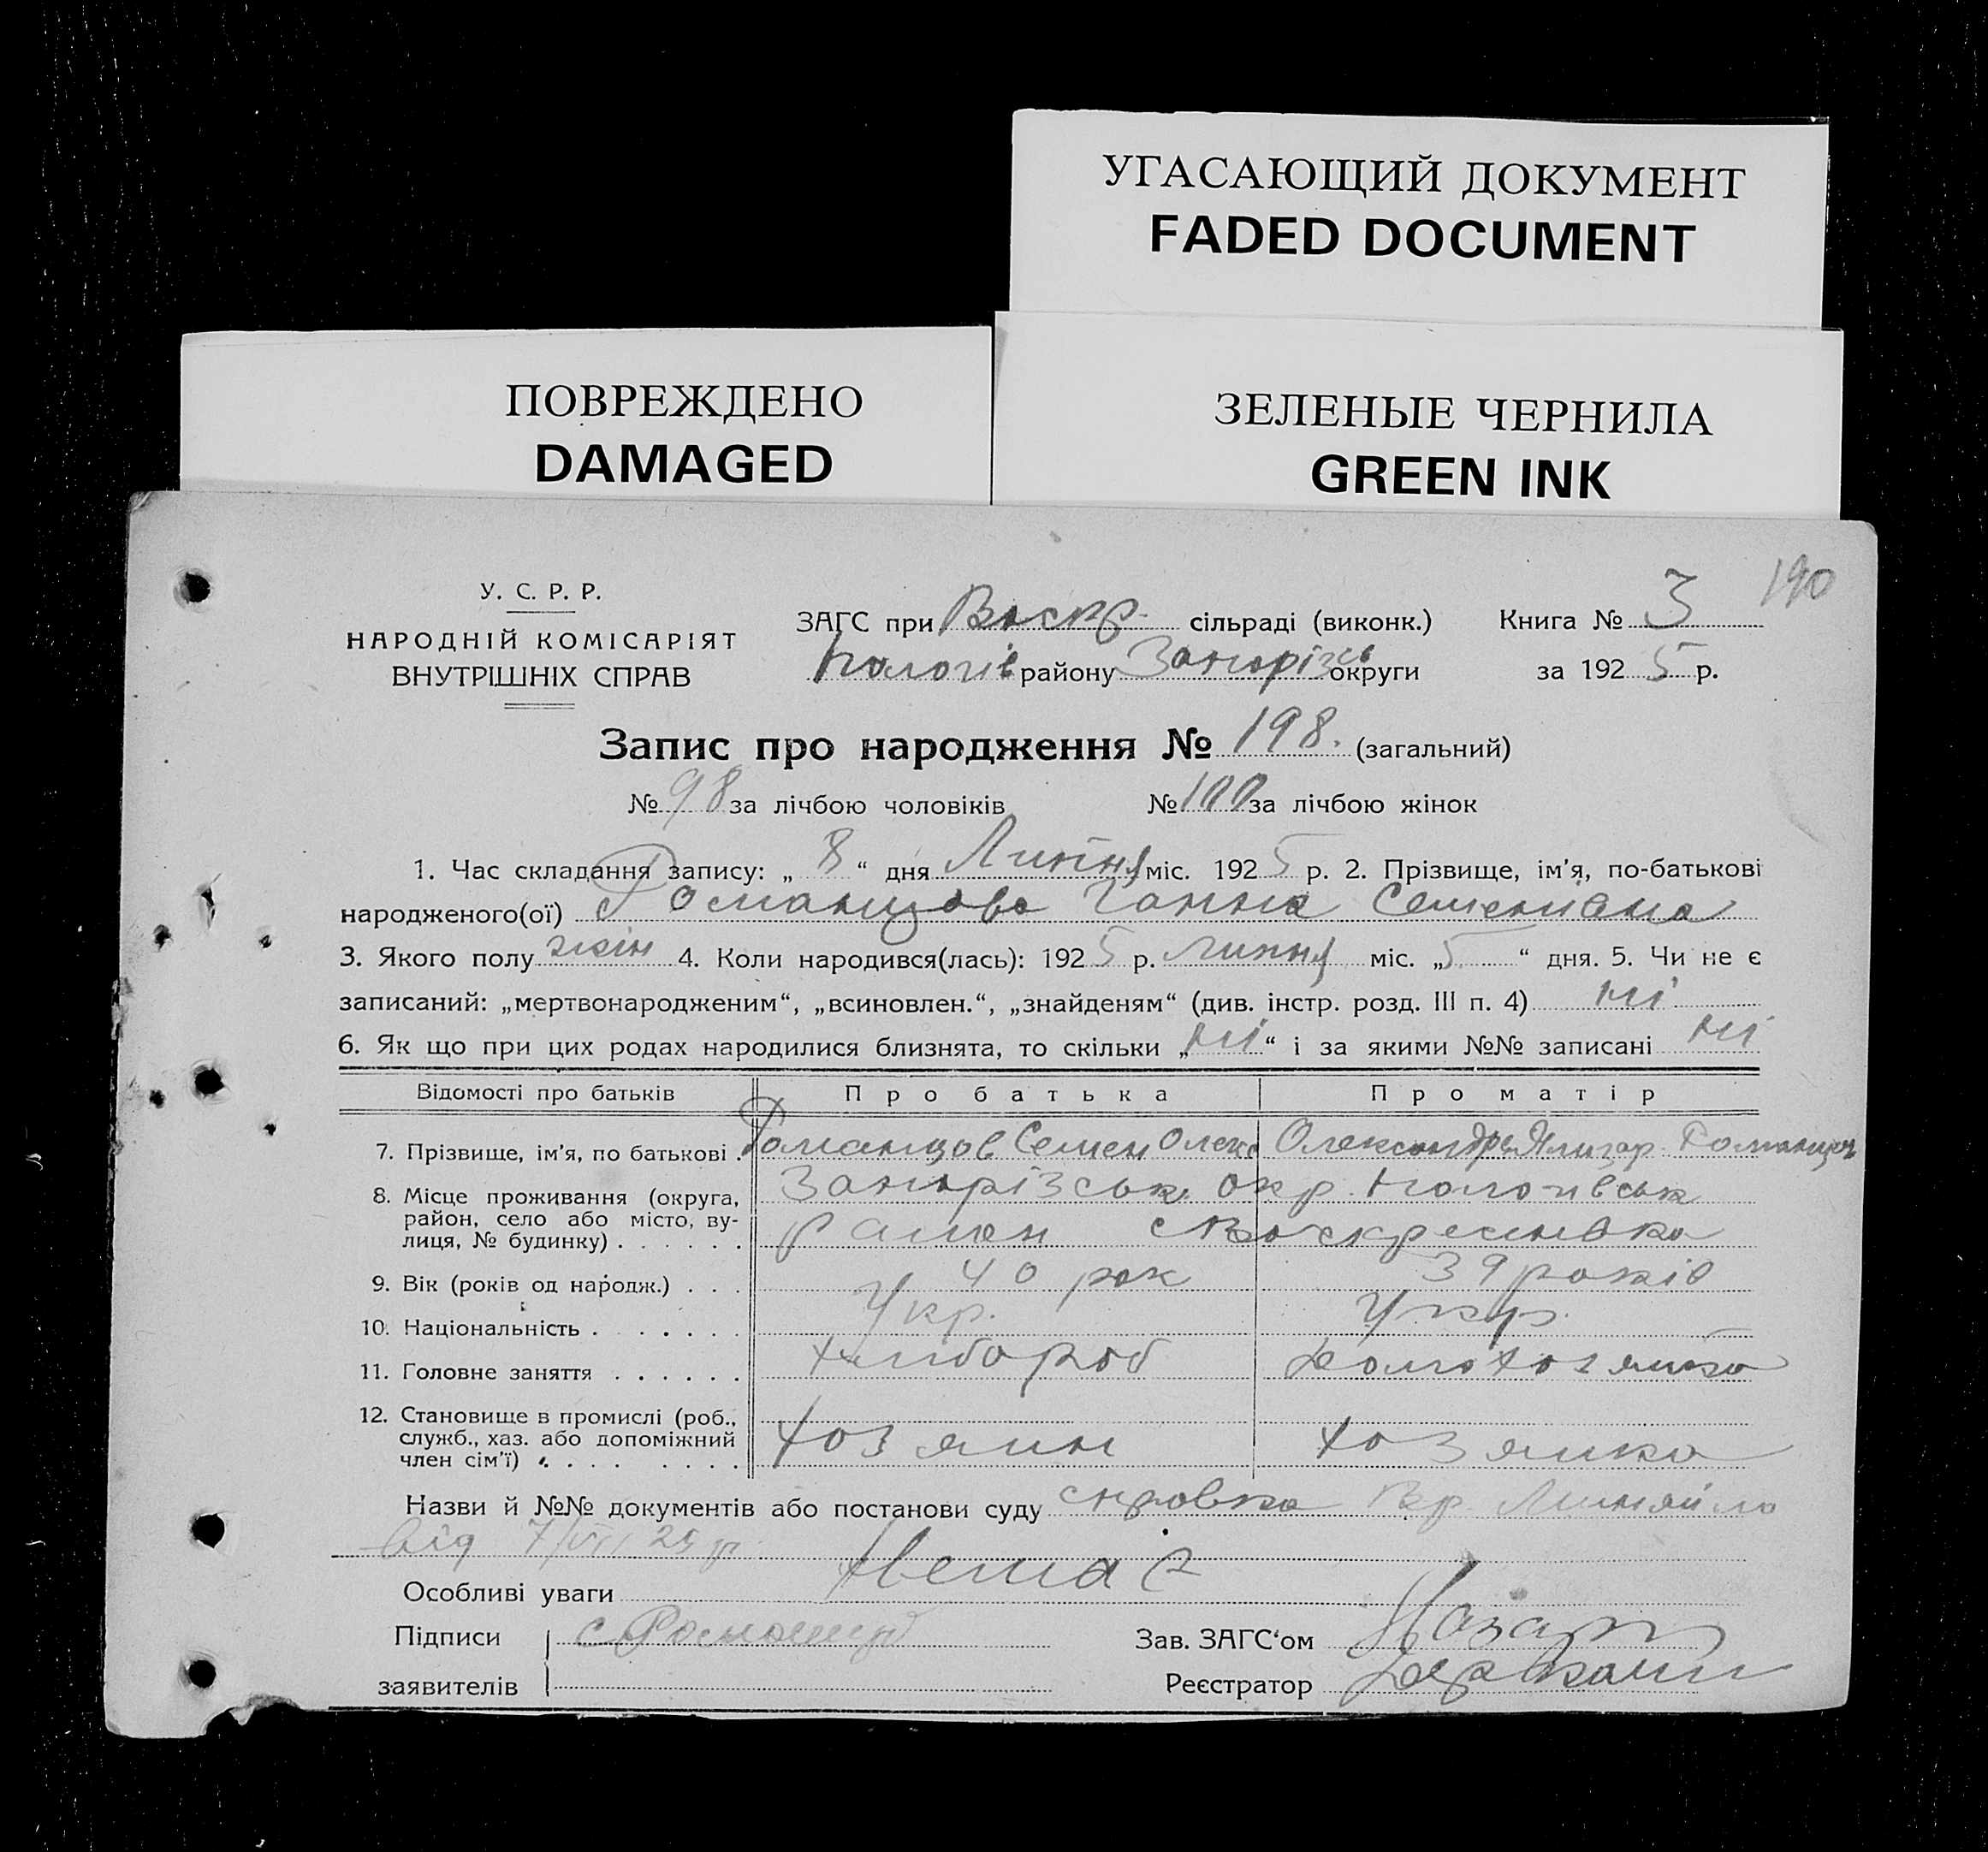 УГАСАЮЩИЙ ДОКУМЕНТ
FADED DOCUMENT
ПОВРЕЖДЕНО
DAMAGED
ЗЕЛЕНЫЕ ЧЕРНИЛА
GREEN INK
190
У. С. Р. Р.
НАРОДНІЙ КОМІСАРІЯТ
ВНУТРІШНІХ СПРАВ
ЗАГС при Воскр. сільраді (виконк.)
Пологів району Запорізьк округи
Книга № 3
за 1925 р.
Запис про народження № 198. (загальний)
№ 98 за лічбою чоловіків № 100 за лічбою жінок
1. Час складання запису: „ 8 “ дня Липня міс. 1925 р. 2. Прізвище, ім’я, по-батькові
народженого(ої) Романцова Ганна Семенівна
3. Якого полу жін 4. Коли народився(лась): 1925 р. Липня міс. „ 5 “ дня. 5. Чи не є
записаний: „мертвонародженим“, „всиновлен.“, „знайденям“ (див. інстр. розд. III п. 4) ні
6. Як що при цих родах народилися близнята, то скільки „ ні “ і за якими №№ записані ні
Відомості про батьків Про батька Про матір
7. Прізвище, ім’я, по батькові . Романцов Семен Олекс Олександра Романцов
8. Місце проживання (округа, Запорізськ окр. Пологивськ
район, село або місто, ву-
лиця, № будинку) . . . . . . район с Воскресинвка
9. Вік (років од народж.) . . . 40 рок 39 років
10. Національність . . . . . . . Укр. Укр.
11. Головне заняття . . . . . . хлибороб Домохозяйка
12. Становище в промислі (роб.,
служб., хаз. або допоміжний
член сім’ї) . . . . . . . . . хозяин хозяйка
Назви й №№ документів або постанови суду справка
від 7/VII 25 р
Особливі уваги Нема
Підписи С Романцов
заявителів
Зав. ЗАГС‘ом
Реєстратор